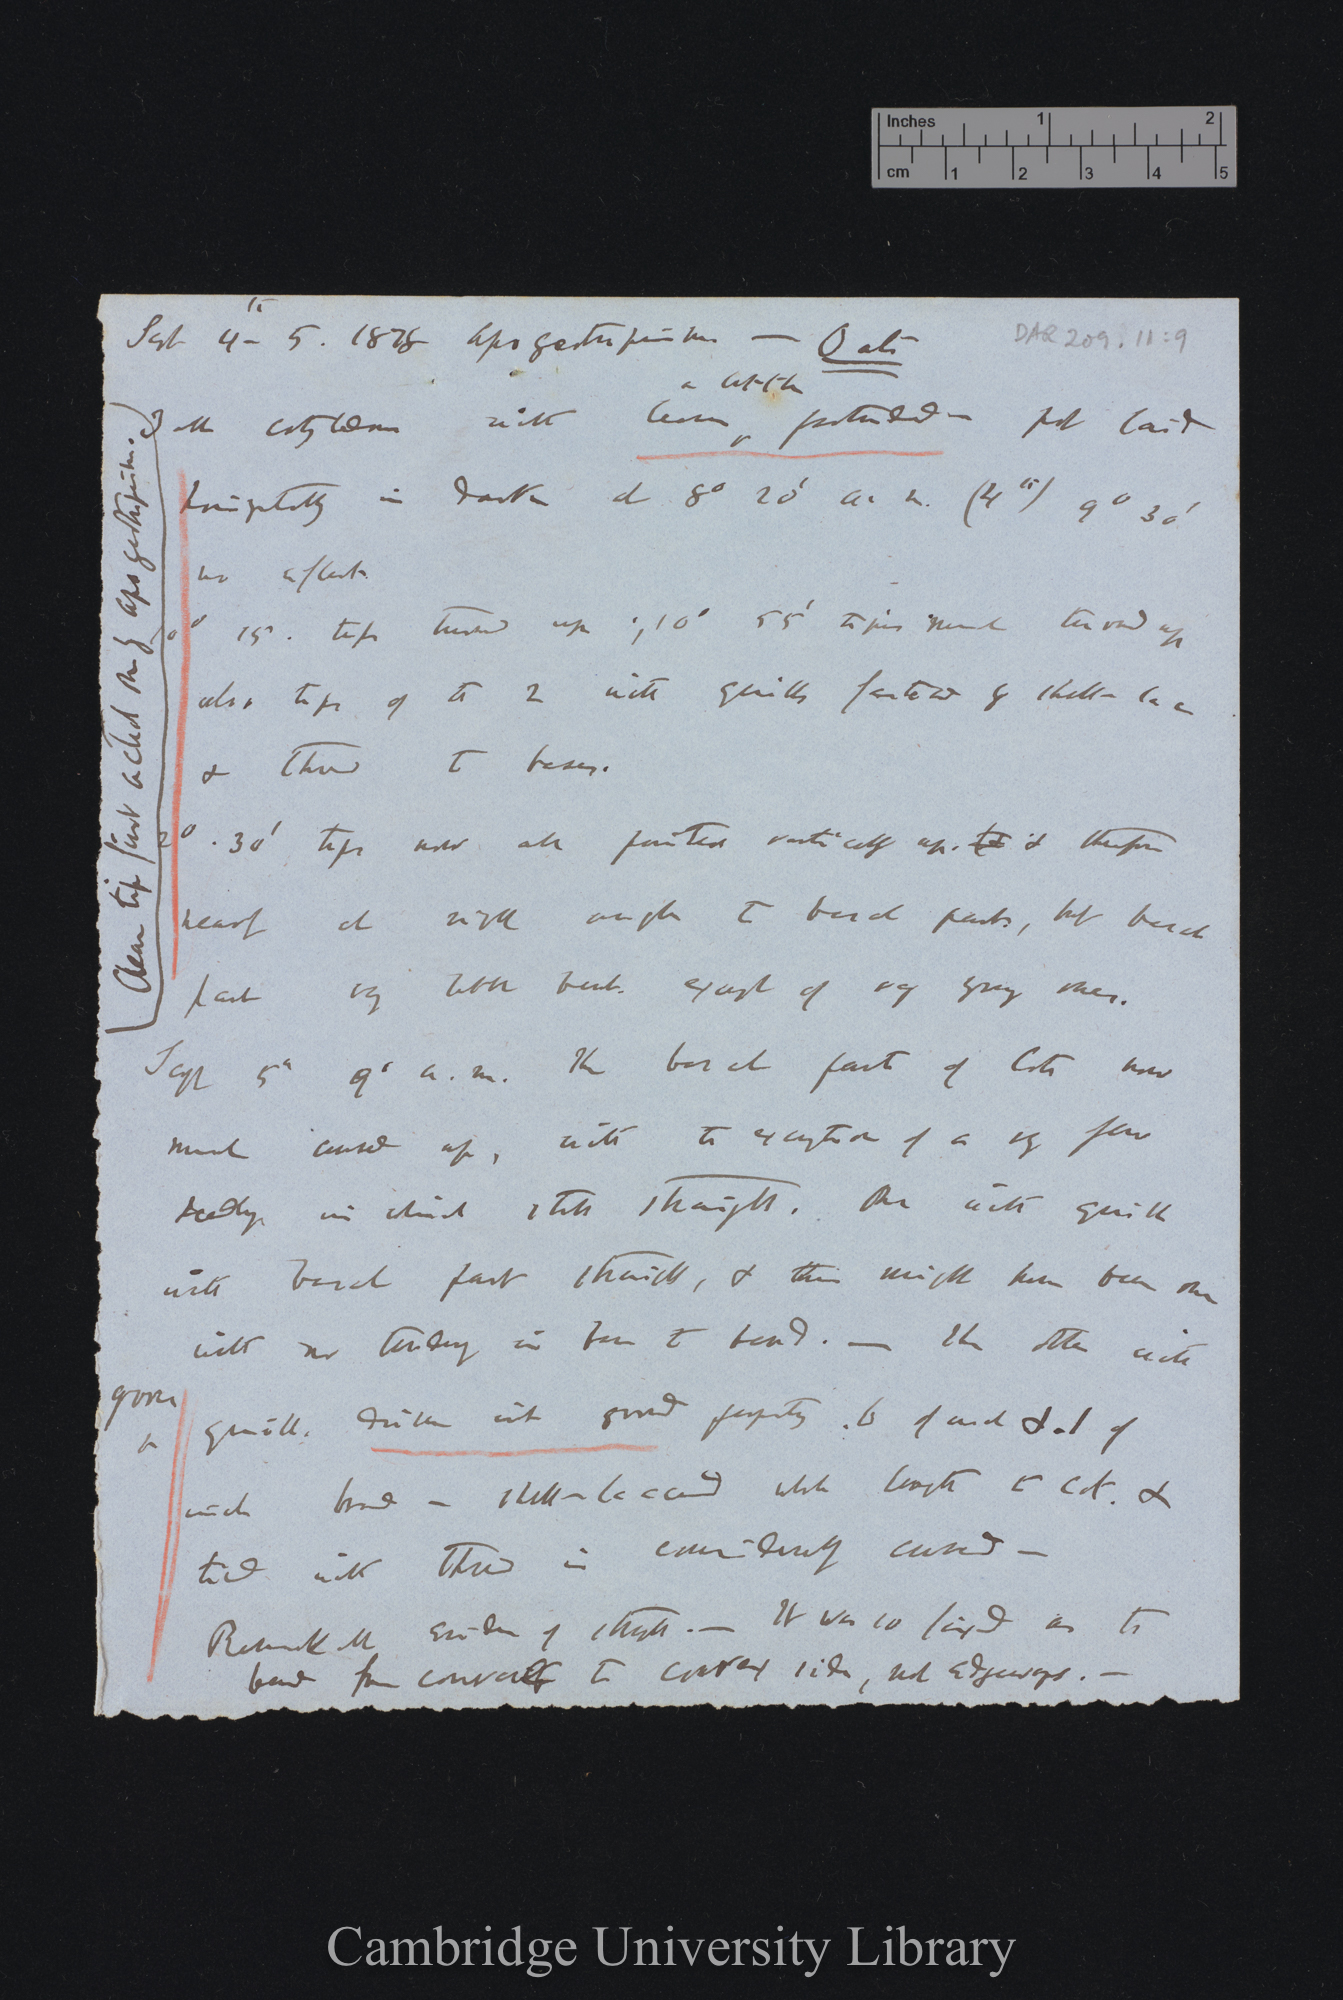 Inches 1 2
cm 1 2 3 4 5
DAR 209:11:9
Sept 4th 5. 1878 Apogeotropism — Oats
a little
cotyledons with leaves protruded — pot laid
in dark at 8° 20' a.m. (4th) 9° 30'
no effect
15'. tips turned up; 10° 55' tips much turned up
also tips of the 2 with quills fastened by shell-lac
& thread to bases.
2°. 30' tips now all pointed vertically up. & therefore
nearly at right angles to basal parts, but basal
part very little bent except of very young ones.
Clear tip first acted on by apogeotropism.
Sept 5th 9° a.m. The basal part of Cots now
much curved up, with the exception of a very few
seedlings in which still straight. One with quill
with basal part straight, & this might have been one
with no tendency in base to bend. — The other with
goose
quill. driven into ground projecting .6 of inch & .1 of
inch broad — shell-lac-ed whole length to Cot. &
tied with thread is considerably curved —
Remarkable evidence of strength. — It was so fixed as to
bend from concave to convex side, not edgeways. —
Cambridge University Library